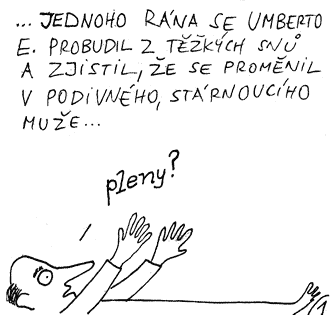 ... JEDNOHO RÁNA SE UMBERTO
E. PROBUDIL Z TĚŽKÝCH SNŮ
A ZJISTIL, ŽE SE PROMĚNIL
V PODIVNÉHO, STÁRNOUCÍHO
MUŽE...
pleny?